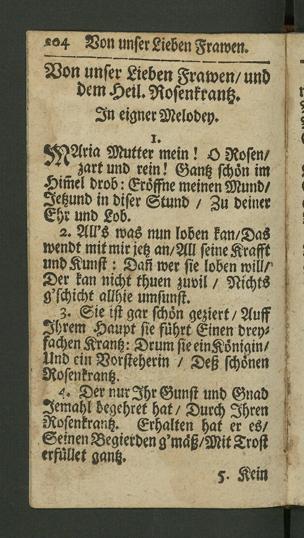 204 Von unser Lieben Frawen.
Von unser Lieben Frawen/ und
dem Heil. Rosenkrantz.
In eigner Melodey.
1.
MAria Mutter mein! O Rosen/
zart und rein! Gantz schön im
Him̃el drob: Eröffne meinen Mund/
Jetzund in diser Stund / Zu deiner
Ehr und Lob.
2. All's was nun loben kan/Das
wendt mit mir jetz an/All seine Krafft
und Kunst: Dañ wer sie loben will/
Der kan nicht thuen zuvil / Nichts
g'schicht allhie umsunst.
3. Sie ist gar schön geziert/ Auff
Ihrem Haupt sie führt Einen drey-
fachen Krantz: Drum sie ein Königin/
Und ein Vorsteherin / Deß schönen
Rosenkrantz.
4. Der nur Ihr Gunst und Gnad
Jemahl begehret hat / Durch Ihren
Rosenkrantz. Erhalten hat er es/
Seinen Begierden g'mäß/Mit Trost
erfüllet gantz.
5. Kein